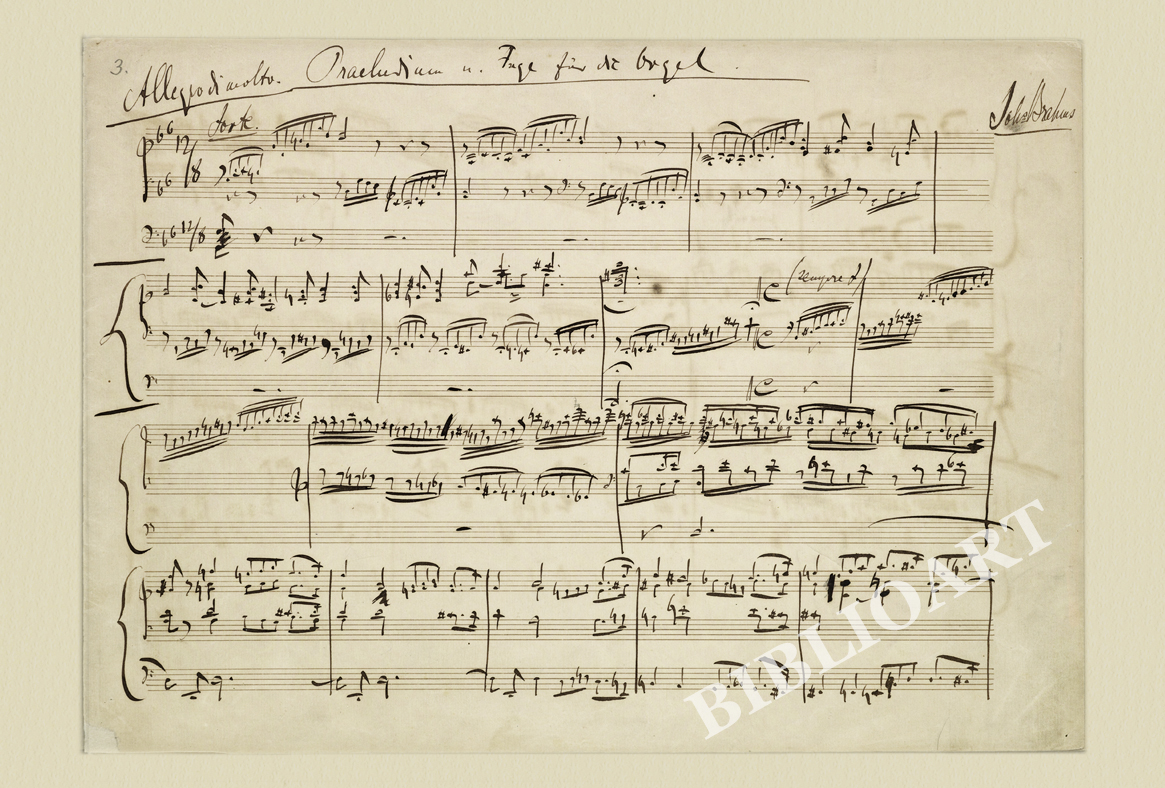 3.
Allegro di molto. Praeludium u. Fuge für die Orgel.
Joh. Brahms
forte.
12/8
12/8
(sempre f)
BIBLIOART